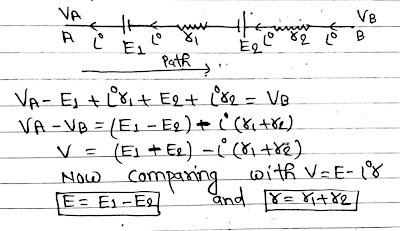 VA VB
A i E1 i r1 E2 i r2 i B
Path
VA - E1 + i r1 + E2 + i r2 = VB
VA - VB = (E1 - E2) - i (r1 + r2)
V = (E1 - E2) - i (r1 + r2)
Now comparing with V = E - i r
E = E1 - E2 and r = r1 + r2